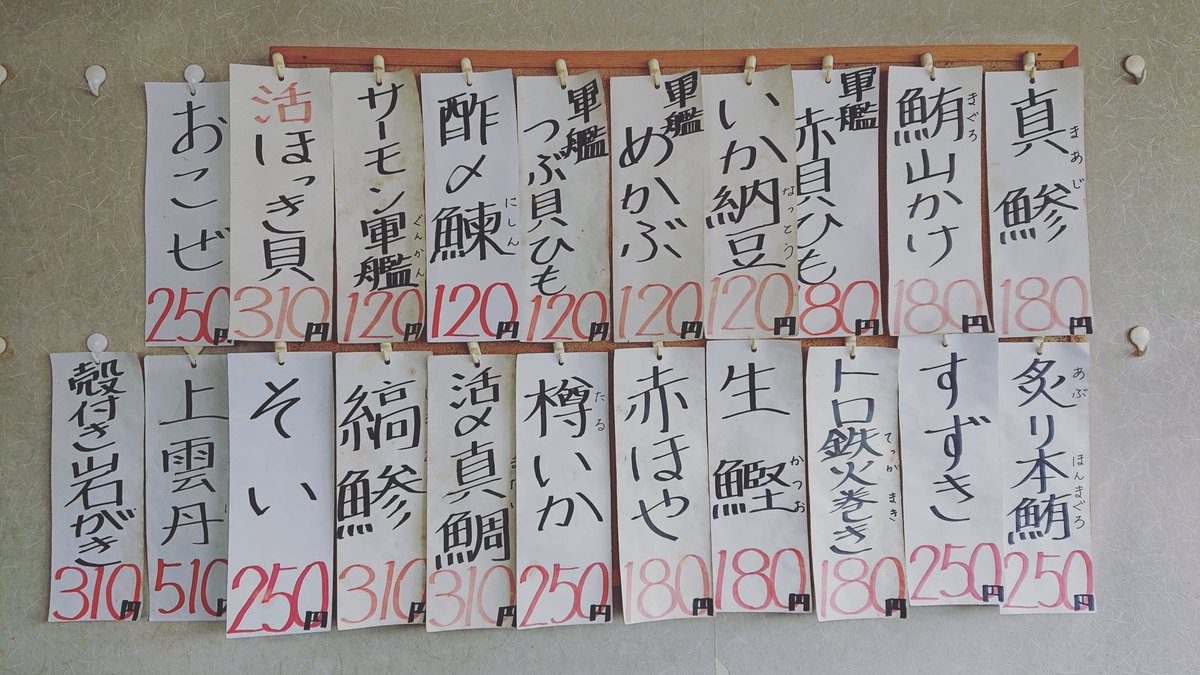 真鯵
まあじ
180円
鮪山かけ
まぐろ
180円
軍艦
赤貝ひも
180円
いか納豆
なっとう
120円
軍艦
めかぶ
120円
軍艦
つぶ貝ひも
120円
酢〆鰊
にしん
120円
サーモン軍艦
ぐんかん
120円
活ほっき貝
310円
おこぜ
250円
炙り本鮪
あぶ
ほんまぐろ
250円
すずき
250円
トロ鉄火巻き
てっか
まき
180円
生鰹
かつお
180円
赤ほや
180円
樽いか
たる
250円
活〆真鯛
310円
縞鯵
310円
そい
250円
上雲丹
510円
殻付き岩がき
310円